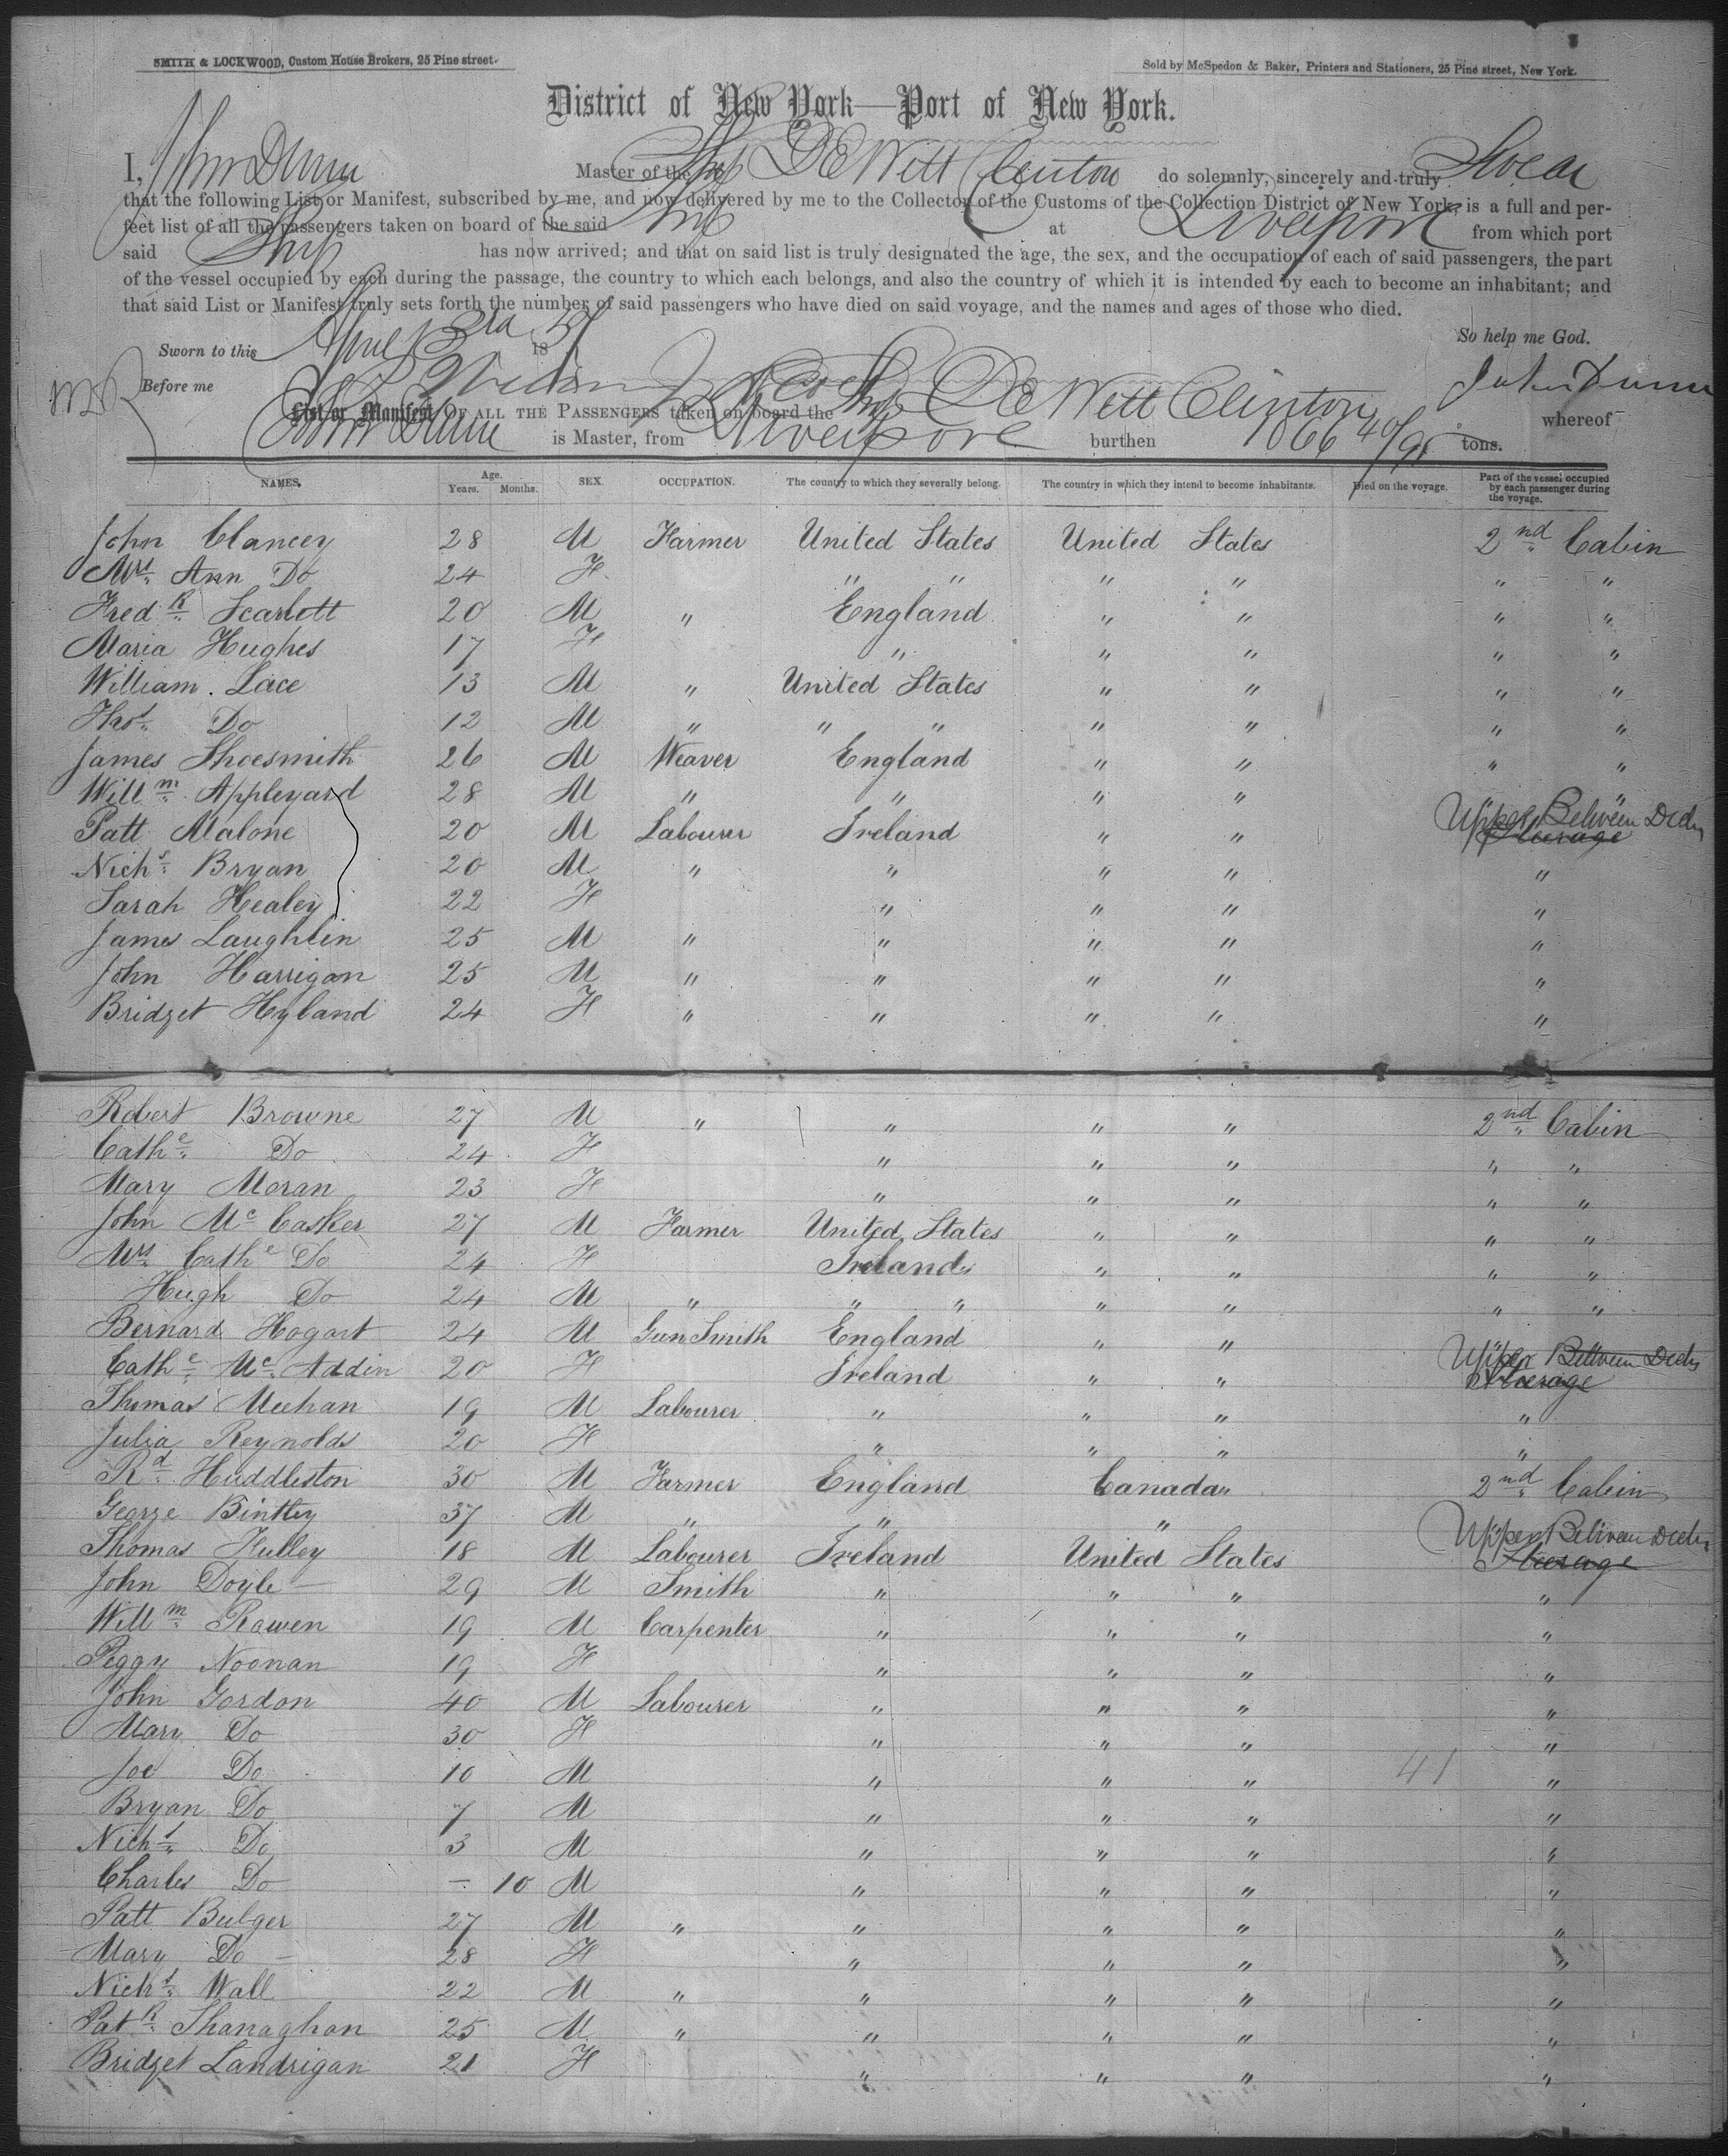 SMITH & LOCKWOOD, Custom House Brokers, 25 Pine street.
Sold by McSpedon & Baker, Printers and Stationers, 25 Pine street, New York.
District of New York—Port of New York.
I, John Dunn Master of the Ship DEWitt Clinton do solemnly, sincerely and truly Swear
that the following List or Manifest, subscribed by me, and now delivered by me to the Collector of the Customs of the Collection District of New York, is a full and per-
fect list of all the passengers taken on board of the said Ship at Liverpool from which port
said Ship has now arrived; and that on said list is truly designated the age, the sex, and the occupation of each of said passengers, the part
of the vessel occupied by each during the passage, the country to which each belongs, and also the country of which it is intended by each to become an inhabitant; and
that said List or Manifest truly sets forth the number of said passengers who have died on said voyage, and the names and ages of those who died.
So help me God.
Sworn to this April 18
Before me
John Dunn
List or Manifest OF ALL THE PASSENGERS taken on board the Ship DEWitt Clinton whereof
John Dunn is Master, from Liverpool burthen 1066 40/95 tons.
NAMES. Age. Years. Months. SEX. OCCUPATION. The country to which they severally belong. The country in which they intend to become inhabitants. Died on the voyage. Part of the vessel occupied by each passenger during the voyage.
John Clancey 28 M Farmer United States United States 2nd Cabin
Mrs Ann Do 24 F " " " " " "
FredR Scarlett 20 M " England " " " "
Maria Hughes 17 F " " " " "
William. Lace 13 M " United States " " " "
Thos Do 12 M " " " " " " "
James Shoesmith 26 M Weaver England " " " "
Willm Appleyard 28 M " " " " " "
Patt Malone 20 M Labourer Ireland " " Upper Between Decks Steerage
Nichs Bryan 20 M " " " " "
Sarah Healey 22 F " " " "
James Laughlin 25 M " " " " "
John Harrigan 25 M " " " " "
Bridget Hyland 24 F " " " " "
Robert Browne 27 M " " " " 2nd Cabin
Cathe Do 24 F " " " " "
Mary Moran 23 F " " " " "
John Mc Casker 27 M Farmer United States " " " "
Mrs Cathe Do 24 F Ireland " " " "
Hugh Do 24 M " " " " " " "
Bernard Hogart 24 M Gun Smith England " "
Cathe Mc Addin 20 F Ireland " " Upper Between Decks Steerage
Thomas Meehan 19 M Labourer " " " "
Julia Reynolds 20 F " " " "
Rd Huddleston 30 M Farmer England Canada " 2nd Cabin
George Bintley 37 M " " "
Thomas Hulley 18 M Labourer Ireland United States Upper Between Decks Steerage
John Doyle 29 M Smith " " " "
Willm Rowen 19 M Carpenter " " " "
Peggy Noonan 19 F " " " "
John Gordon 40 M Labourer " " " "
Mary Do 30 F " " " "
Joe Do 10 M " " " 41 "
Bryan Do 7 M " " " "
Nichs Do 3 M " " " "
Charles Do — 10 M " " " "
Patt Bulger 27 M " " " " "
Mary Do 28 F " " " "
Nichs Wall 22 M " " " " "
PatR Shanaghan 25 M " " " " "
Bridget Landrigan 21 F " " " "